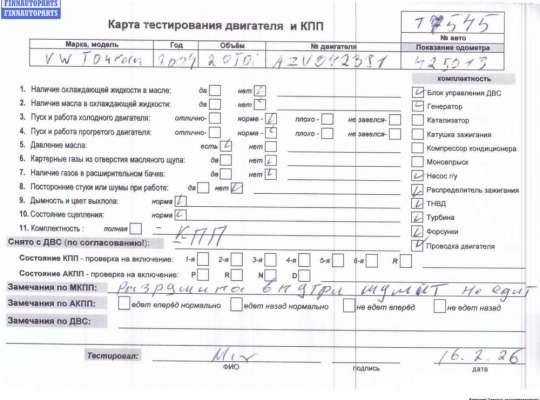 FINNAUTOPARTS
FINNAUTOPARTS
Карта тестирования двигателя и КПП
17545
№ авто
Марка, модель Год Объём № двигателя Показание одометра
VW Touran 2004 2.0TDi AZV042391 425013
комплектность
1. Наличие охлаждающей жидкости в масле: да нет
2. Наличие масла в охлаждающей жидкости: да нет
3. Пуск и работа холодного двигателя: отлично- норма - плохо - не завелся-
4. Пуск и работа прогретого двигателя: отлично- норма - плохо - не завелся-
5. Давление масла: есть нет
6. Картерные газы из отверстия масляного щупа: да нет
7. Наличие газов в расширительном бачке: да нет
8. Посторонние стуки или шумы при работе: да нет
9. Дымность и цвет выхлопа: норма
10. Состояние сцепления: норма
11. Комплектность : полная - КПП
Блок управления ДВС
Генератор
Катализатор
Катушка зажигания
Компрессор кондиционера
Моновпрыск
Насос г/у
Распределитель зажигания
ТНВД
Турбина
Форсунки
Проводка двигателя
Снято с ДВС (по согласованию!):
Состояние КПП - проверка на включение: 1-я 2-я 3-я 4-я 5-я 6-я R
Состояние АКПП - проверка на включение: P R N D
Замечания по МКПП: Разрушина внутри шумит не едит
Замечания по АКПП: едет вперёд нормально едет назад нормально не едет вперёд не едет назад
Замечания по ДВС:
Тестировал: 16.2.26
ФИО подпись дата